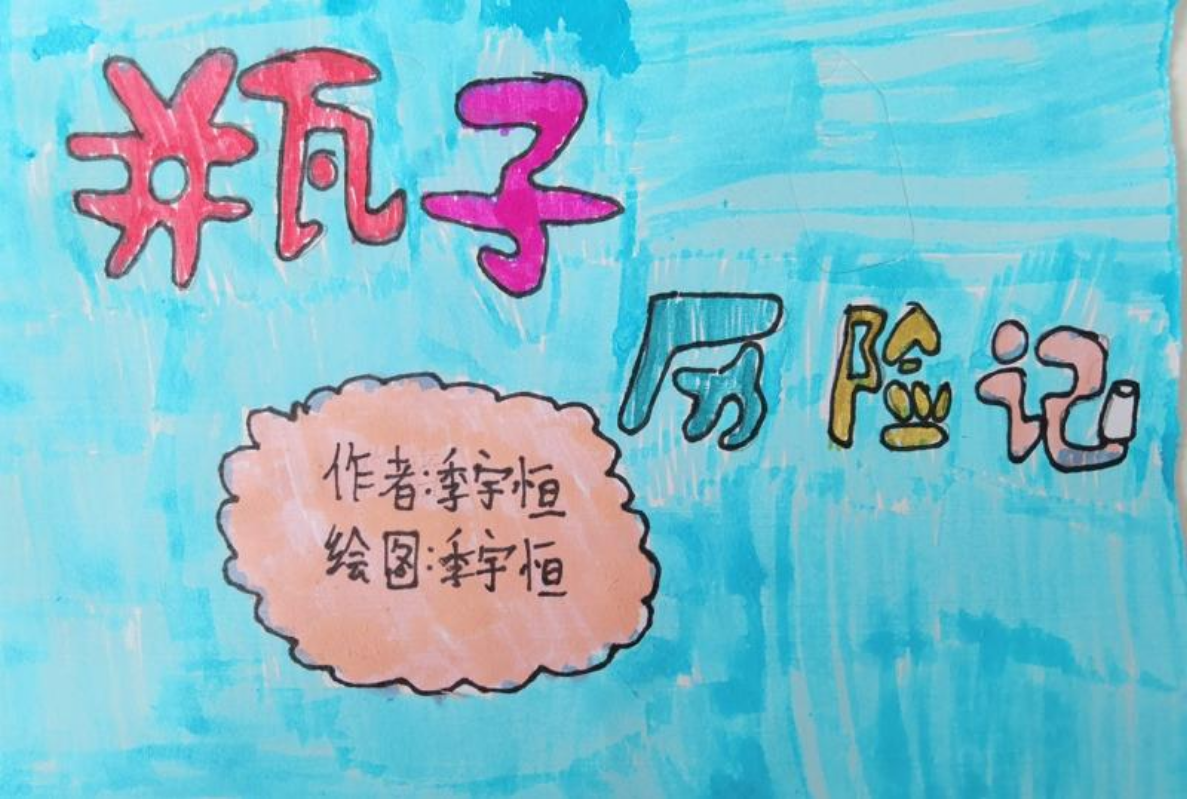 瓶子
历险记
作者:季宇恒
绘图:季宇恒